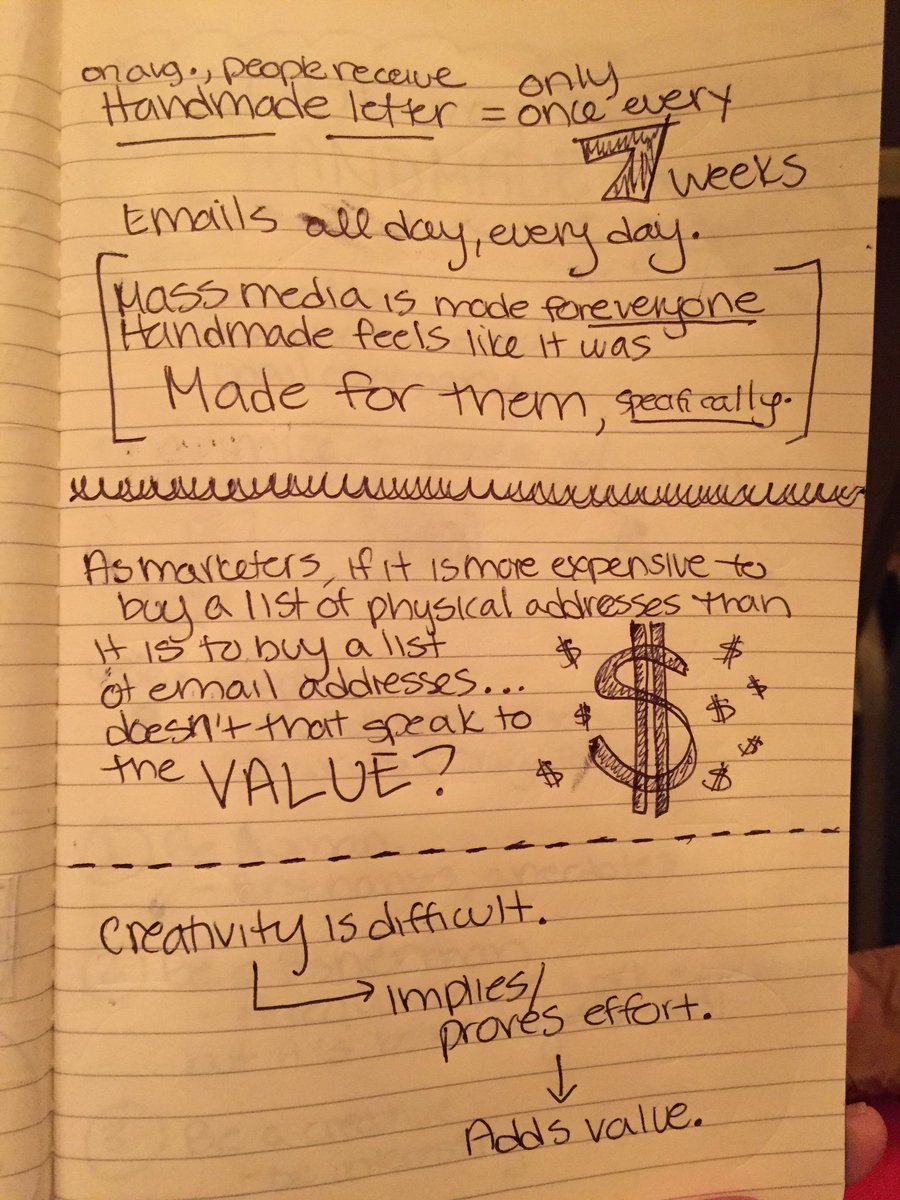 on avg., people receive only
Handmade letter = once every
7 weeks
Emails all day, every day.
Mass media is made for everyone
Handmade feels like it was
Made for them, specifically.
As marketers, if it is more expensive to
buy a list of physical addresses than
it is to buy a list
of email addresses...
doesn't that speak to
the VALUE?
$ $ $ $ $ $ $ $ $
Creativity is difficult.
implies/
proves effort.
Adds value.